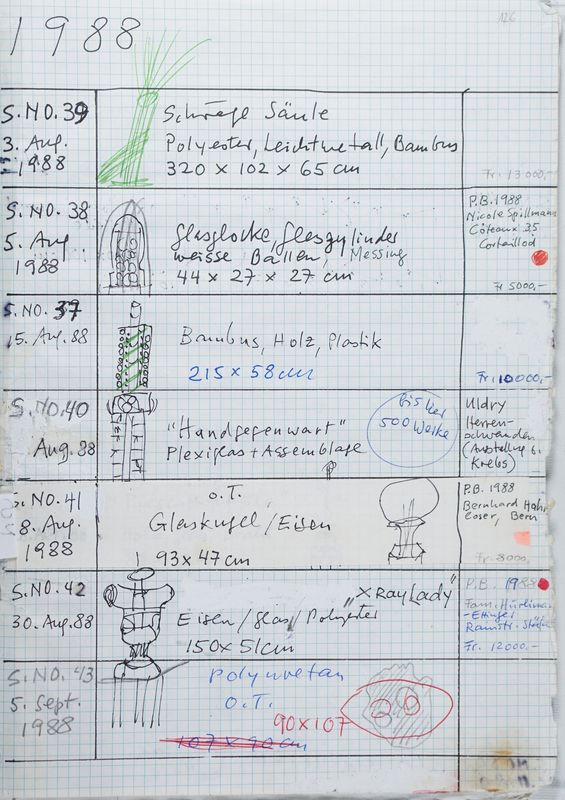 126
1988
S.NO. 39
3. Aug.
1988
Schräge Säule
Polyester, Leichtmetall, Bambus
320 x 102 x 65 cm
Fr. 13000,-
S. NO. 38
5. Aug
1988
Glasglocke, Glaszylinder
weisse Bällen, Messing
44 x 27 x 27 cm
P.B. 1988
Nicole Spillmann
Côteaux 35
Cortaillod
Fr 5000,-
S. NO. 37
15. Aug. 88
Bambus, Holz, Plastik
215 x 58 cm
Fr. 10000,-
S.NO.40
Aug. 88
"Handgegenwart"
Plexiglas + Assemblage
bisher
500 Werke
Uldry
Herren-
schwanden
(Ausstellung b.
Krebs)
S.NO. 41
8. Aug.
1988
o.T.
Glaskugel/Eisen
193 x 47 cm
P.B. 1988
Bernhard
Bern
Fr. 8000,-
S.NO. 42
30. Aug. 88
"XRAYLADY"
Eisen/Glas/Polyester
150 x 51 cm
P.B. 1988
Fam.
Fr. 12000.-
S. NO. 43
5. Sept.
1988
Polyuretan
o.T.
90x107
107 x 90 cm